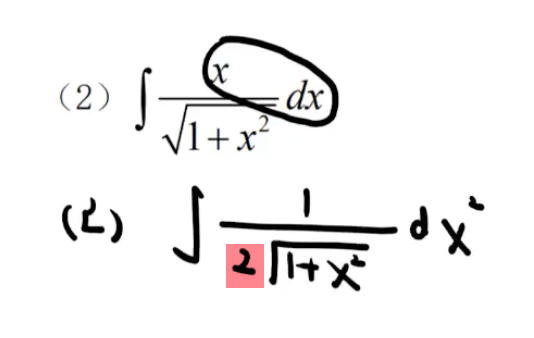 （2） ∫ x/√(1+x²) dx
(2) ∫ 1/(2√(1+x²)) dx²